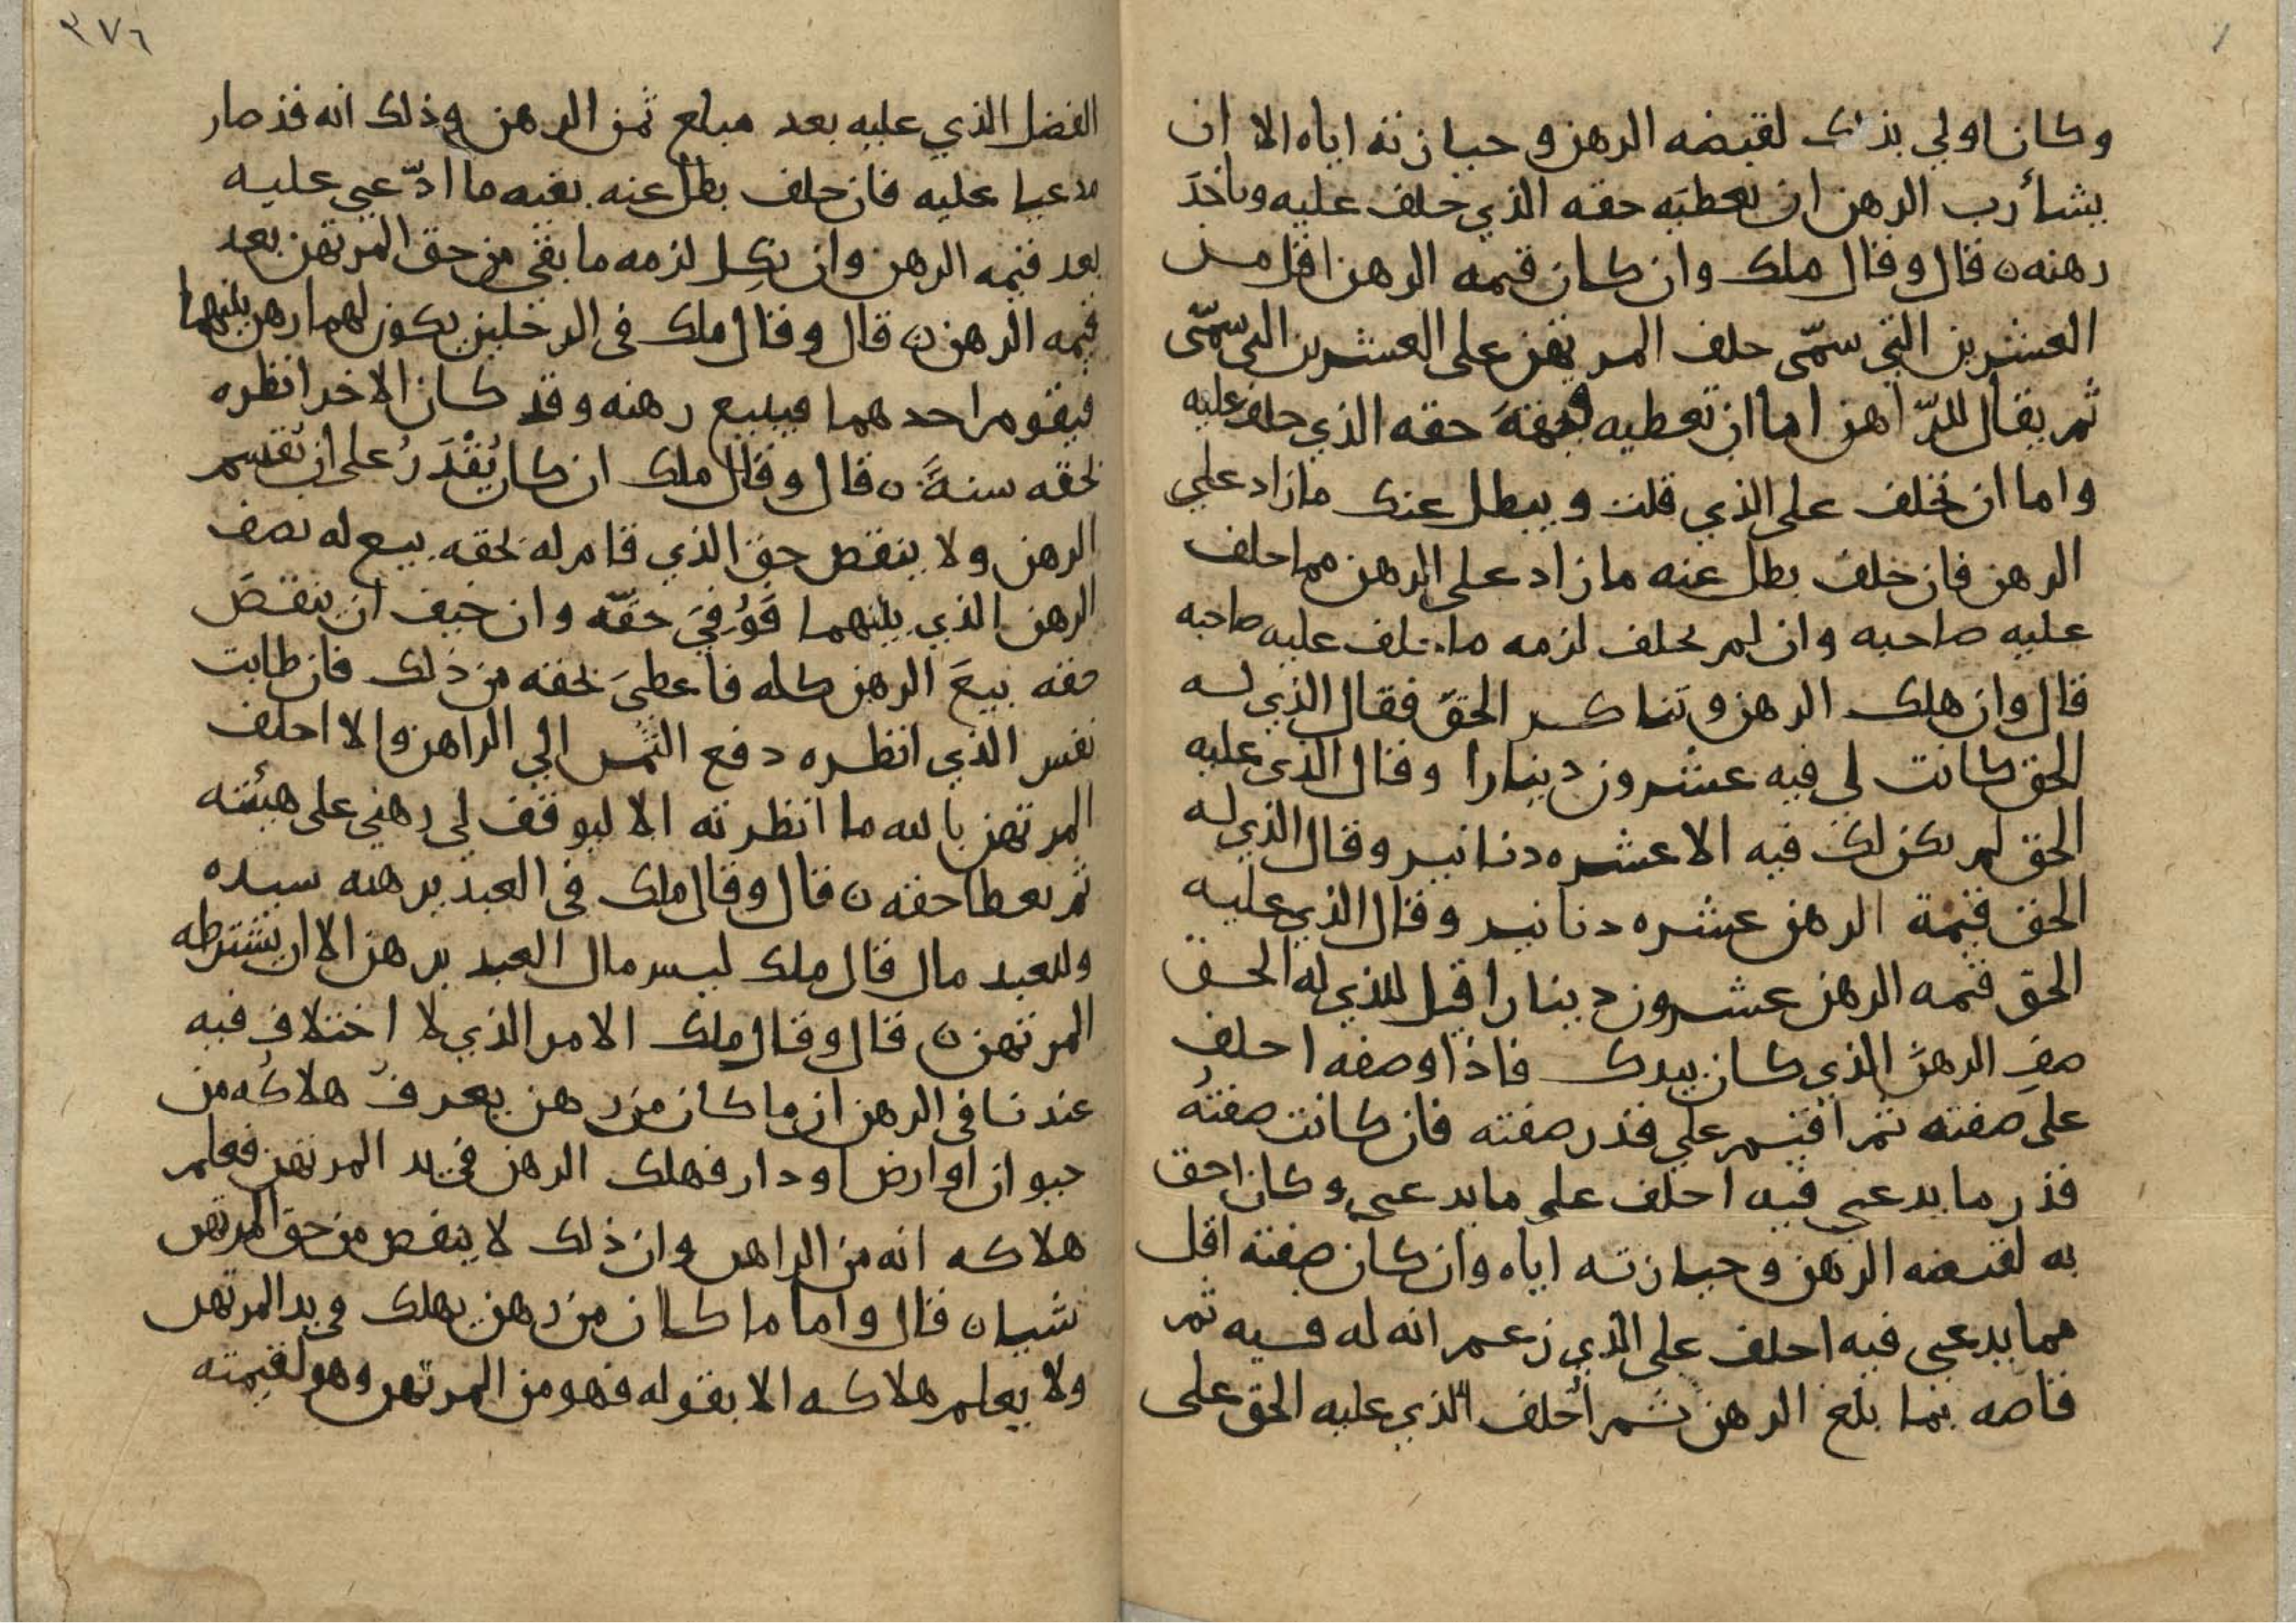 وكان اولى بذلك لقبضه الرهن وحيازته اياه الا ان
يشأ رب الرهن ان يعطيَه حقه الذي حلف عليه وياخذَ
رهنه ن قال وقال ملك وان كان قيمه الرهن اقل من
العشرين التي سمّى حلف المرتهن على العشرين التي سمّى
ثم يقال للرّاهن اما ان تعطيه حقه الذي حلف عليه
واما ان تحلف على الذي قلت ويبطل عنك ما زاد على
الرهن فان حلف بطل عنه ما زاد على الرهن مما حلف
عليه صاحبه وان لم يحلف لزمه ما حلف عليه صاحبه
قال وان هلك الرهن وتناكر الحقّ فقال الذي له
الحق كانت لي فيه عشرون دينارا وقال الذي عليه
الحق لم يكن لك فيه الا عشره دنانير وقال الذي له
الحق قيمة الرهن عشره دنانير وقال الذي عليه
الحق قيمه الرهن عشرون دينارا قيل للذي له الحق
صفِ الرهنَ الذي كان بيدك فاذا وصفه احلف
على صفته ثم اقيم على قدر صفته فان كانت صفتُه
قدر ما يدعي فيه احلف على ما يدعي وكان احق
به لقبضه الرهن وحيازته اياه وان كان صفته اقل
مما يدعي فيه احلف على الذي زعم انه له فيه ثم
قاصه بما بلغ الرهن ثم أحلف الذي عليه الحق على
٣٧٦
الفضل الذي عليه بعد مبلع ثمن الرهن وذلك انه قد صار
مدعيا عليه فان حلف بطل عنه بقيه ما ادّعي عليه
بعد قيمه الرهن وان نكِل لزمه ما بقي من حق المرتهن بعد
قيمه الرهن ن قال وقال ملك في الرجلين يكون لهما رهن بينهما
فيقوم احدهما فيبيع رهنه وقد كان الاخر انظره
بحقه سنةً ن قال وقال ملك ان كان يُقْدَرُ على ان يقسم
الرهن ولا ينقص حق الذي قام له بحقه بيع له نصف
الرهن الذي بينهما فَوُفِيَ حقّه وان خيف ان ينقصَ
حقه بيعَ الرهن كله فاعطيَ بحقه من ذلك فان طابت
نفس الذي انظره دفع الثمن الي الراهن والا احلف
المرتهن بالله ما انظرته الا ليوقف لي رهني على هيئته
ثم يعطا حقه ن قال وقال ملك في العبد يرهنه سيده
وللعبد مال قال ملك ليس مال العبد برهن الا ان يشترطه
المرتهن ن قال وقال ملك الامر الذي لا اختلاف فيه
عندنا في الرهن ان ما كان من رهن يعرف هلاكُه من
حيوان او ارض او دار فهلك الرهن في يد المرتهن فعلم
هلاكه انه من الراهن وان ذلك لا ينقص من حق المرتهن
شيا ن قال واما ما كان من رهن يهلك في يد المرتهن
ولا يعلم هلاكه الا بقوله فهو من المرتهن وهو لقيمته